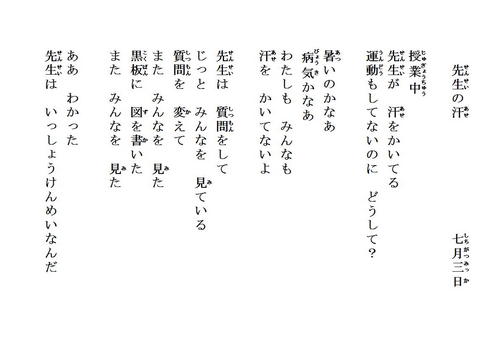 先生の汗　七月三日
授業中
先生が　汗をかいてる
運動もしてないのに　どうして？
暑いのかなあ
病気かなあ
わたしも　みんなも
汗を　かいてないよ
先生は　質問をして
じっと　みんなを　見ている
質問を　変えて
また　みんなを　見た
黒板に　図を書いた
また　みんなを　見た
ああ　わかった
先生は　いっしょうけんめいなんだ